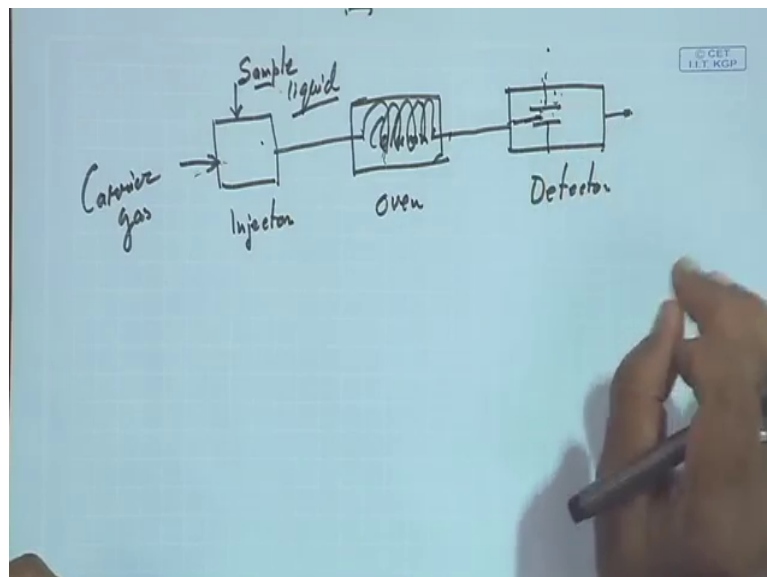 © CET
I.I.T. KGP
Sample
liquid
Carrier
gas
Injector
Column
Oven
Detector